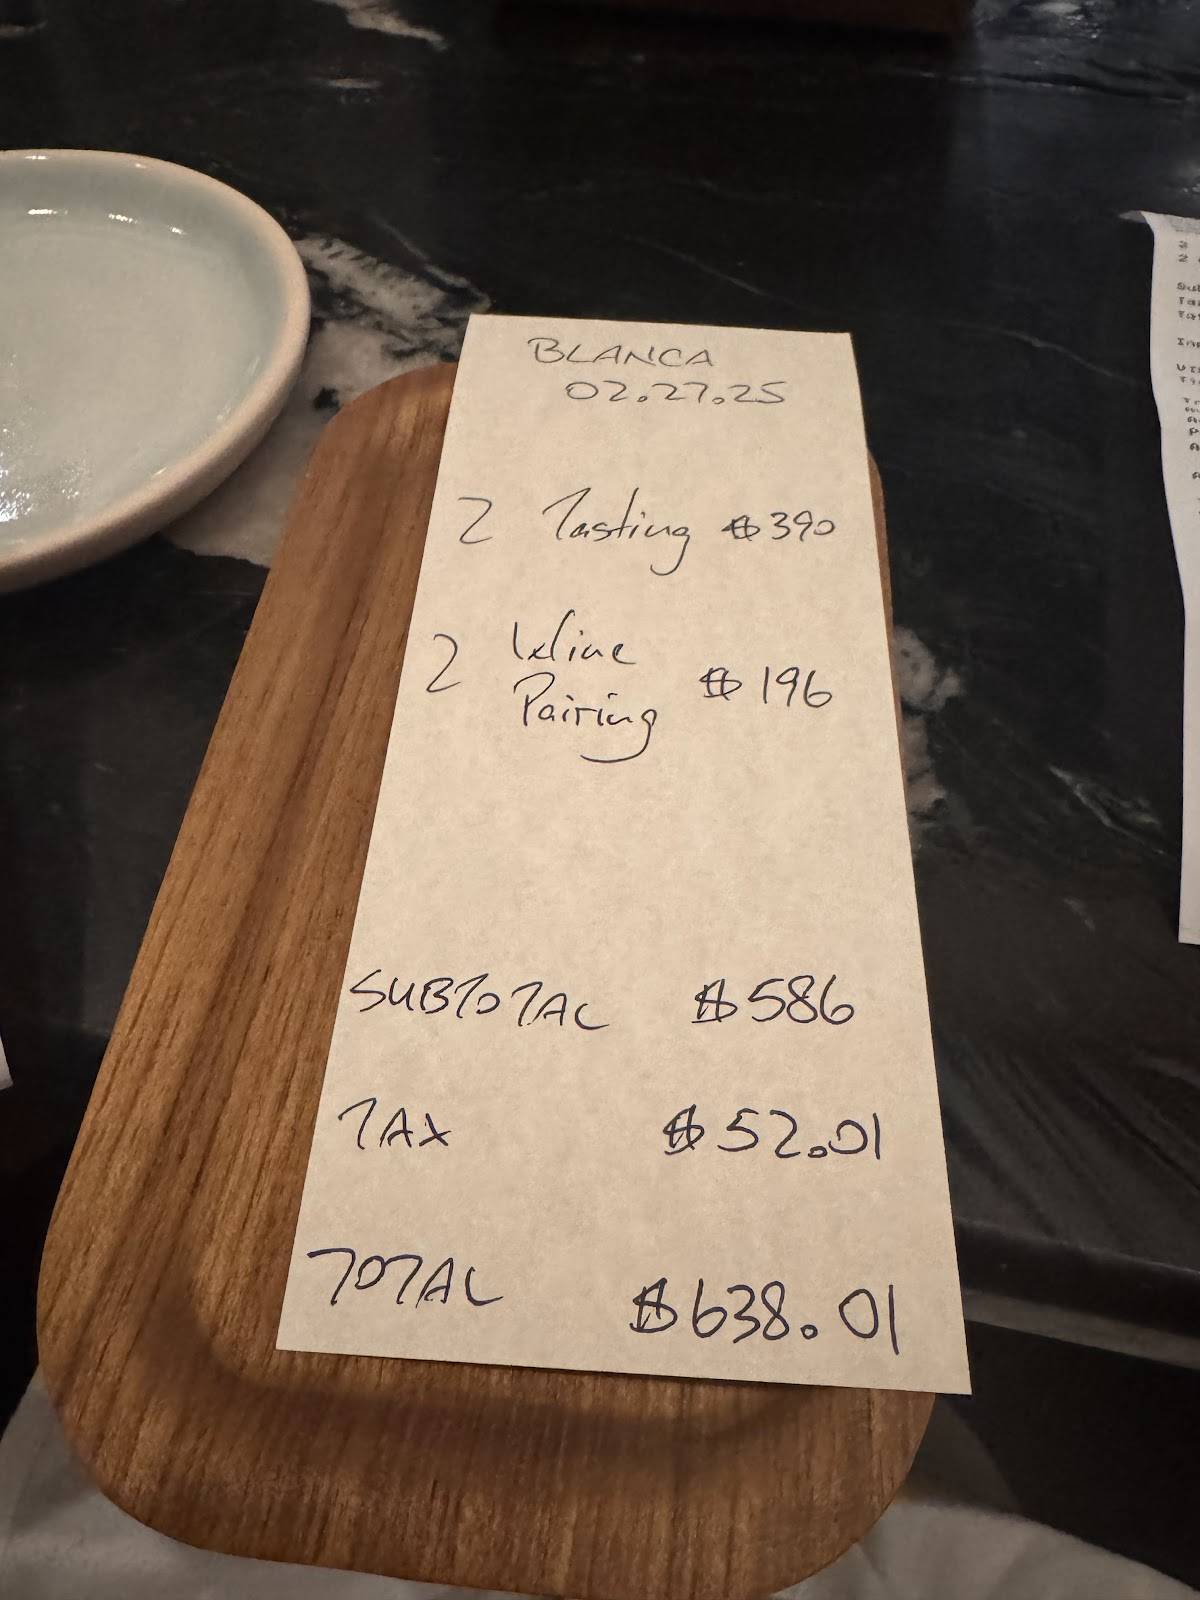 BLANCA
02.27.25
2 Tasting $390
2 Wine
Pairing $196
SUBTOTAL $586
TAX $52.01
TOTAL $638.01